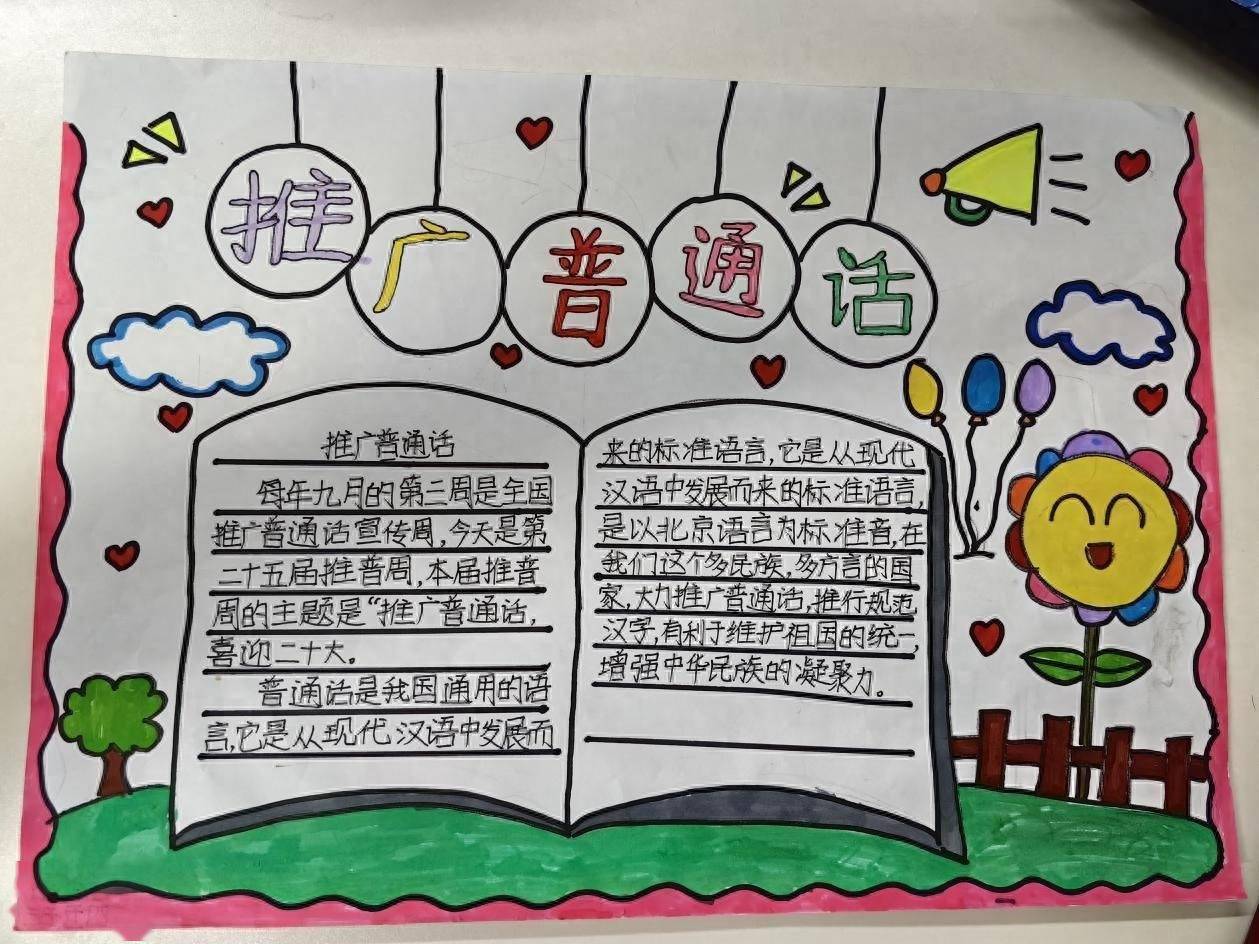 推广普通话
推广普通话
每年九月的第三周是全国
推广普通话宣传周,今天是第
二十五届推普周,本届推普
周的主题是“推广普通话,
喜迎二十大。
普通话是我国通用的语
言,它是从现代汉语中发展而
来的标准语言,它是从现代
汉语中发展而来的标准语言,
是以北京语言为标准音,在
我们这个多民族,多方言的国
家,大力推广普通话,推行规范
汉字,有利于维护祖国的统一,
增强中华民族的凝聚力。